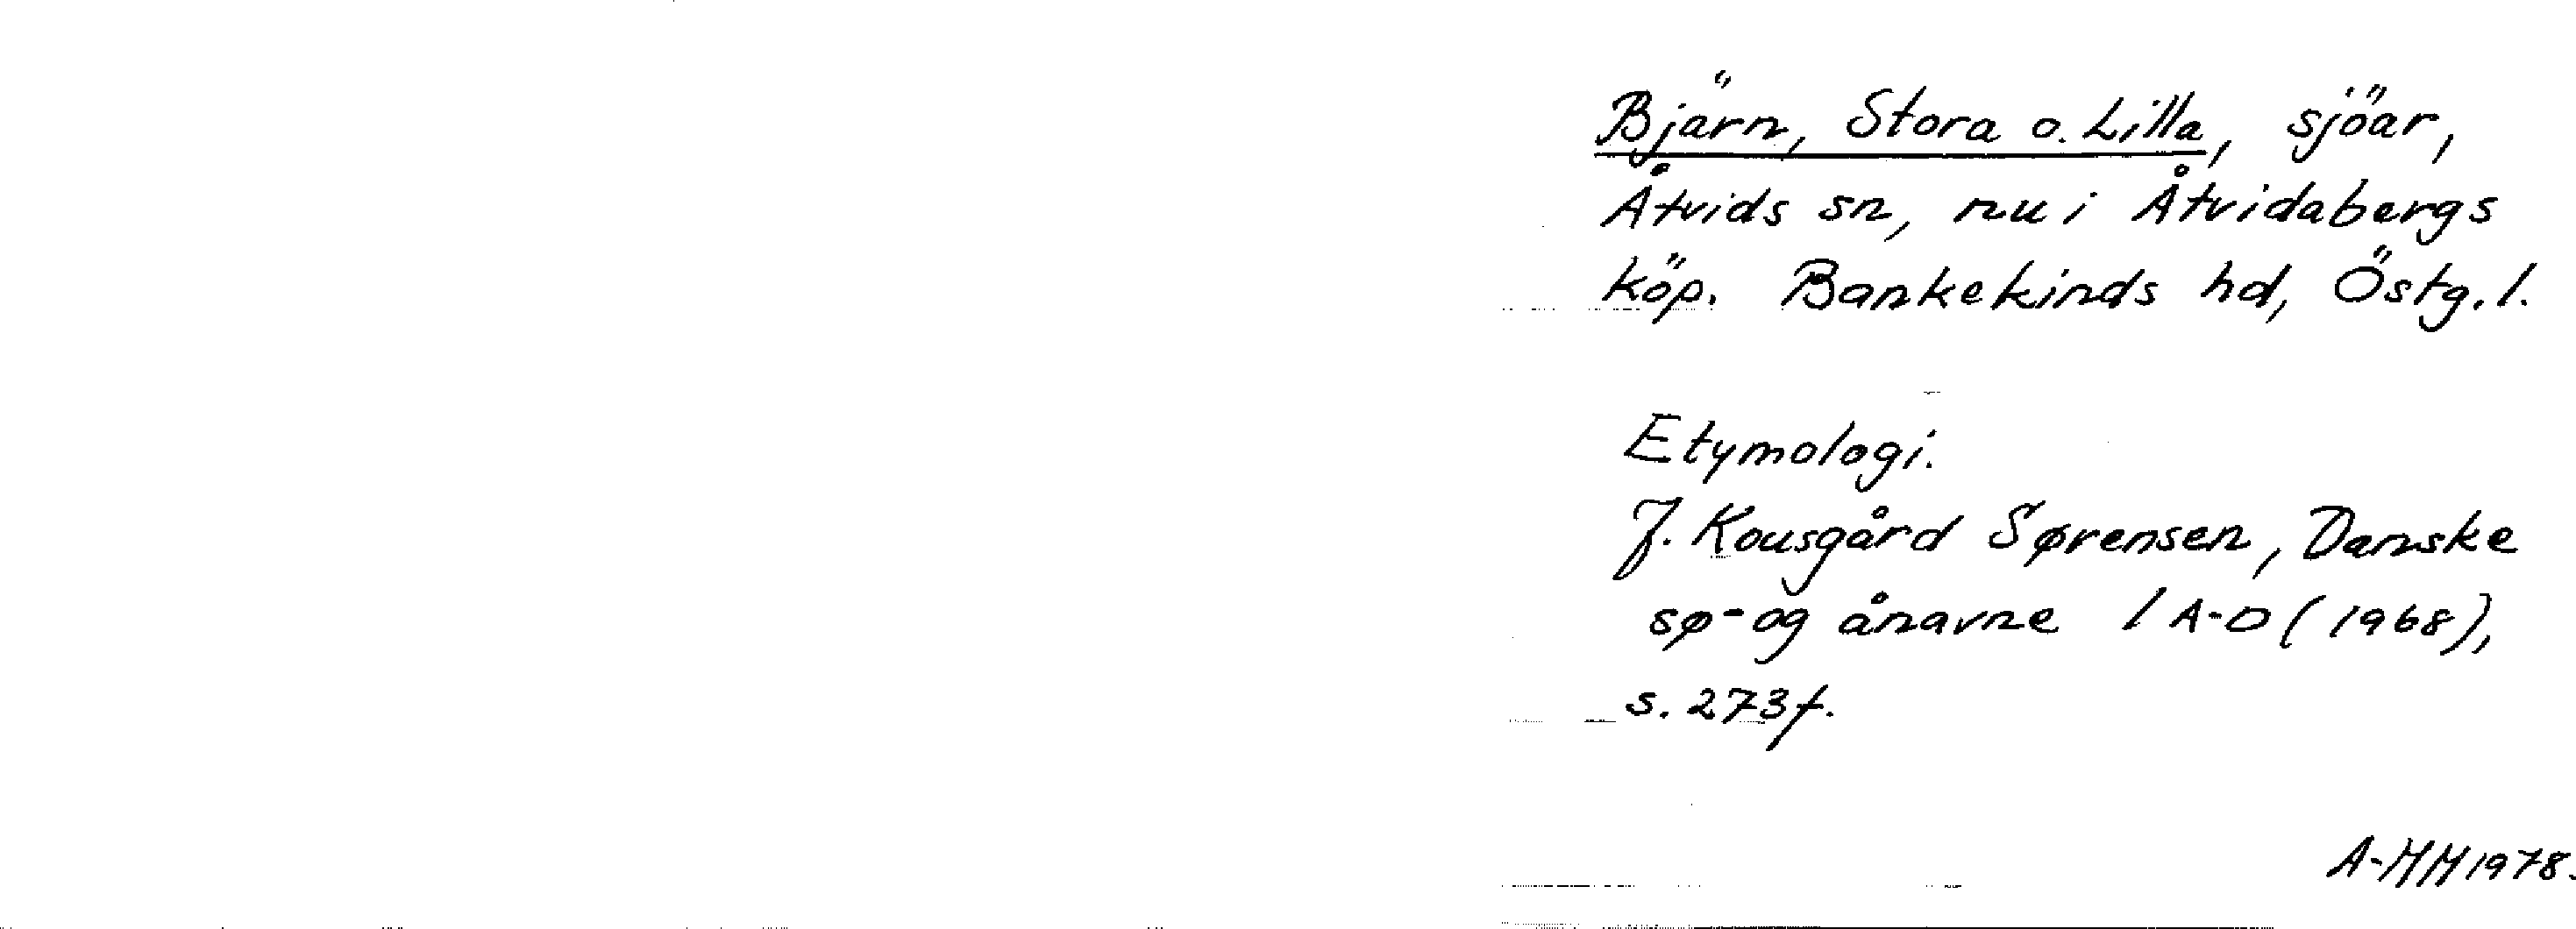 Bjärn, Stora o. Lilla, sjöar,
Åtvids sn, nu i Åtvidabergs
köp. Bankekinds hd, Östg. l.
Etymologi.
J. Kousgård Sørensen, Danske
sø- og ånavne 1 A-D (1968),
s. 273f.
A-HH 1978.